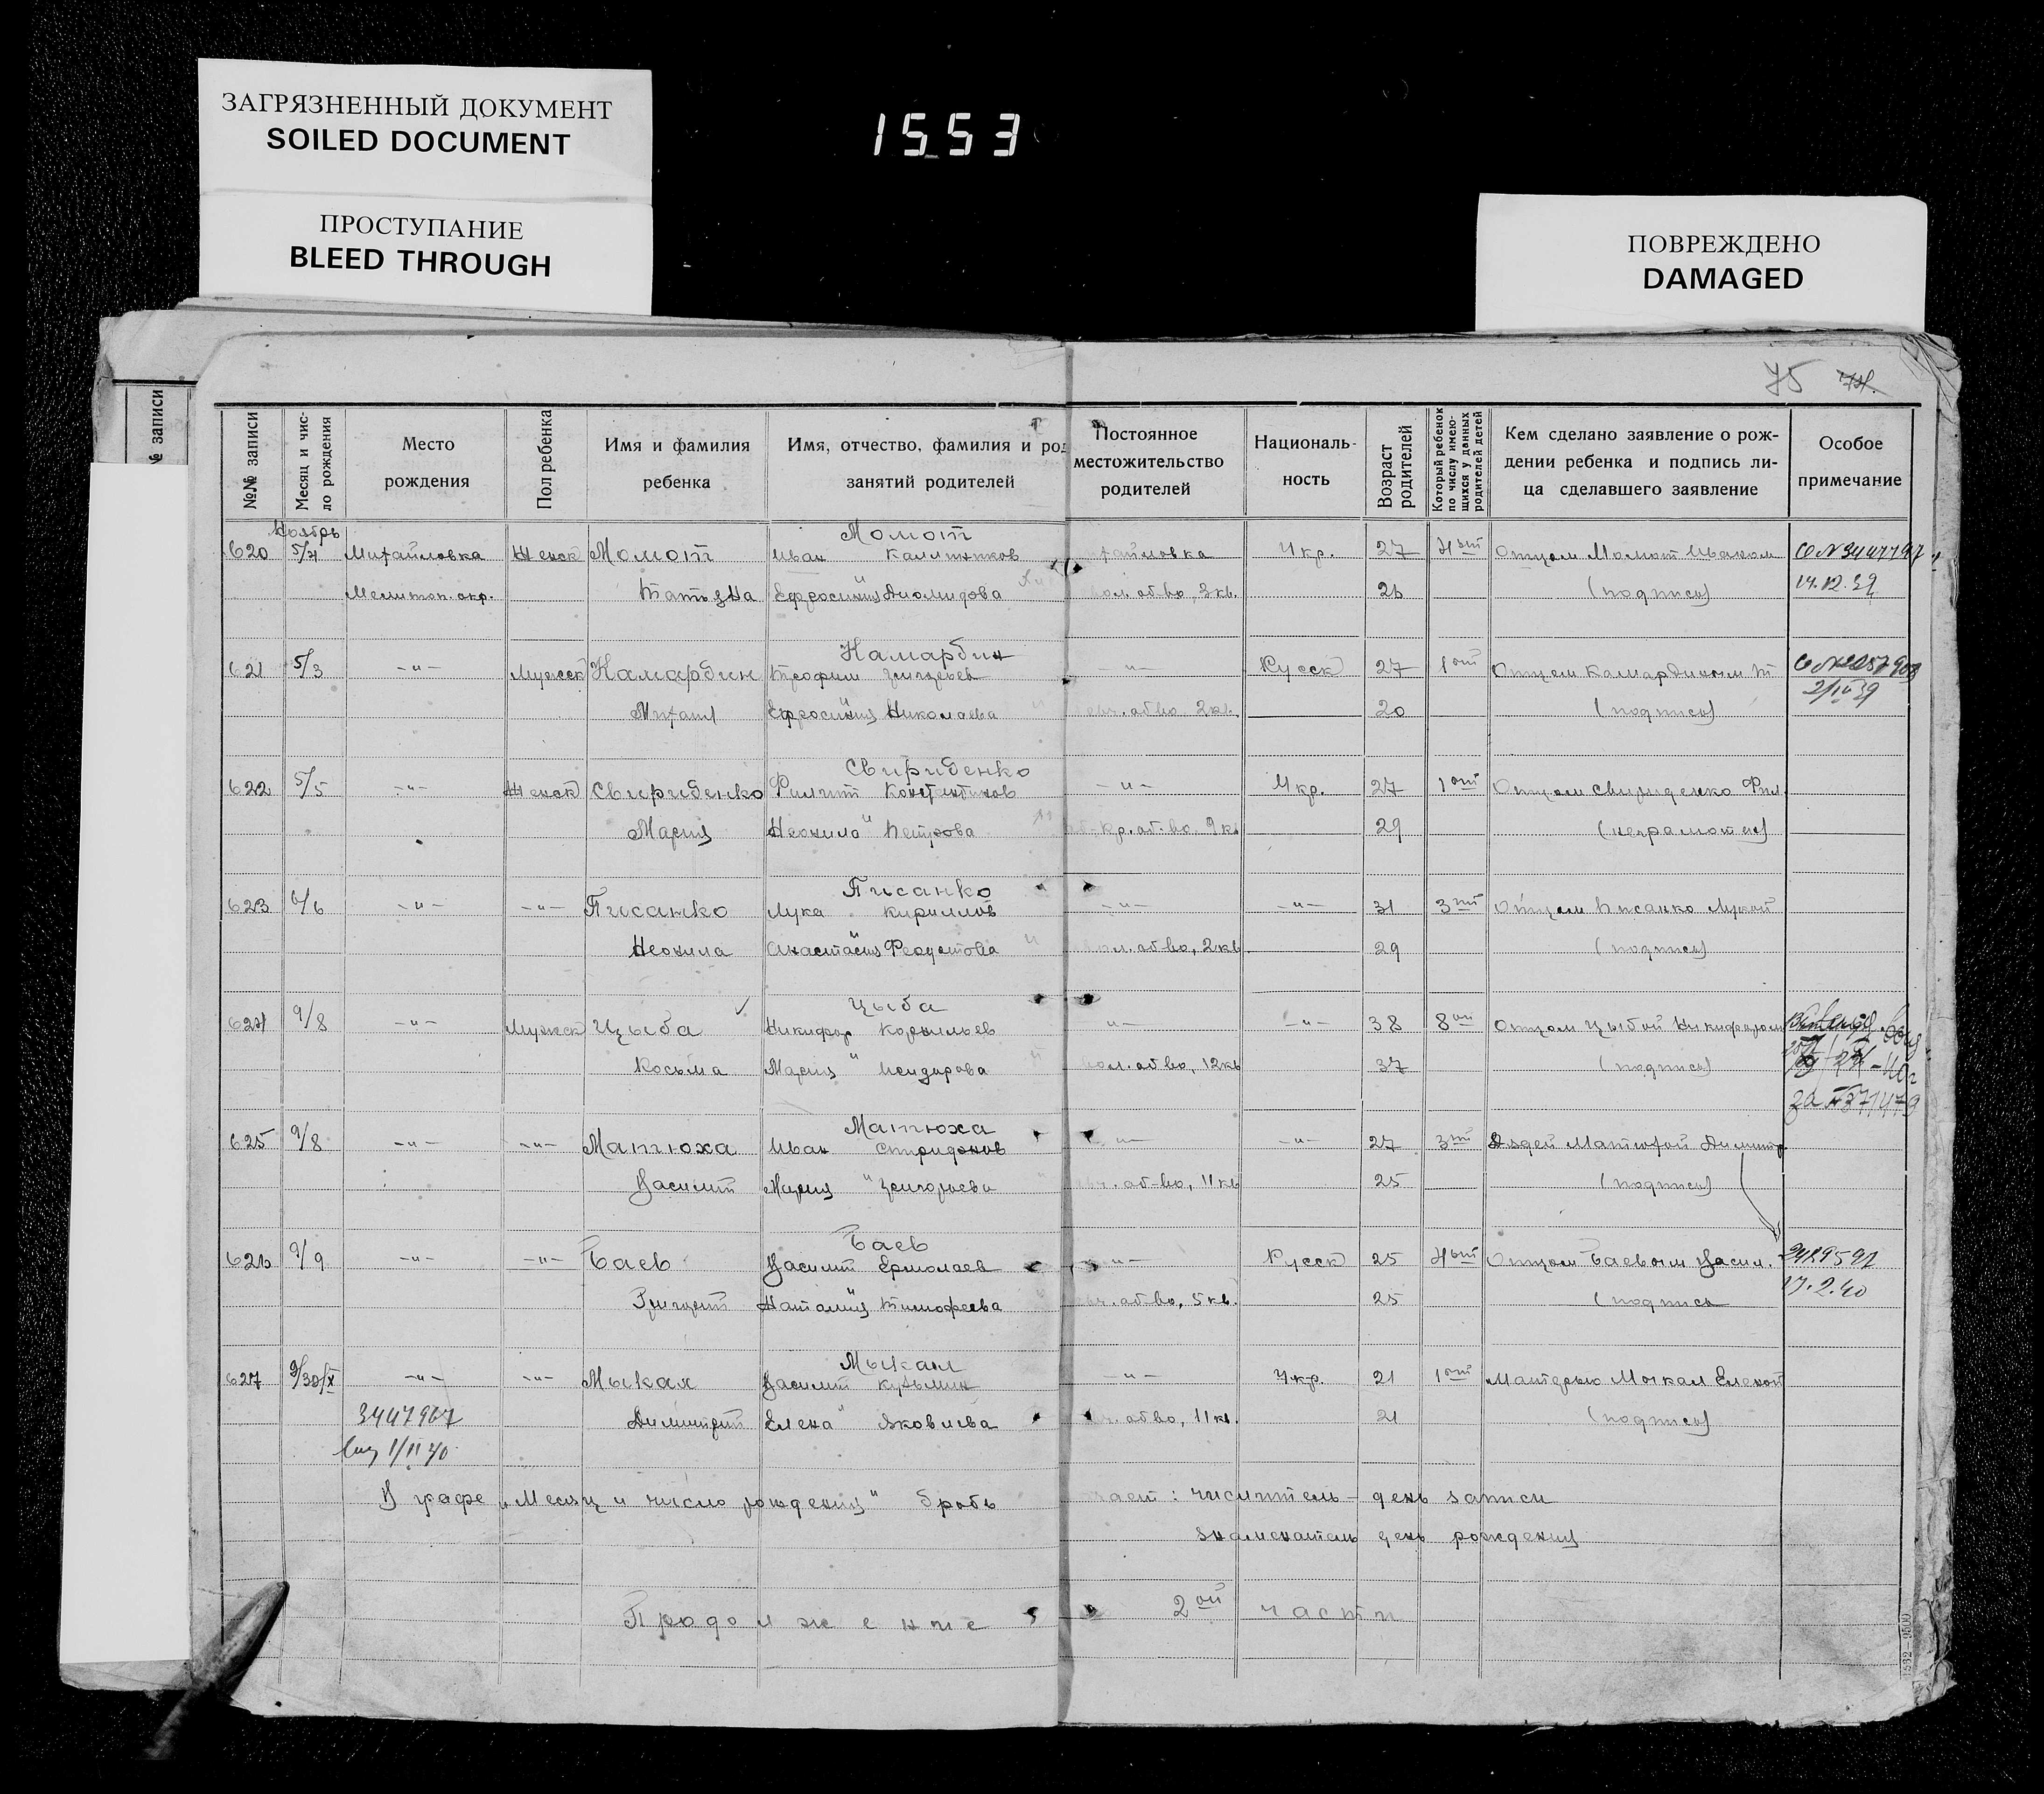 ЗАГРЯЗНЕННЫЙ ДОКУМЕНТ
SOILED DOCUMENT
ПРОСТУПАНИЕ
BLEED THROUGH
1553
ПОВРЕЖДЕНО
DAMAGED
75 74.
№ записи
№№ записи
Месяц и чис-
ло рождения
Место
рождения
Пол ребенка
Имя и фамилия
ребенка
Имя, отчество, фамилия и род
занятий родителей
Постоянное
местожительство
родителей
Националь-
ность
Возраст
родителей
Который ребенок
по числу имею-
щихся у данных
родителей детей
Кем сделано заявление о рож-
дении ребенка и подпись ли-
ца сделавшего заявление
Особое
примечание
Ноябрь Момот
620 5/4 Михайловка Женск Момот Иван Каллиников Укр. 27 4ый Отцом Момот Иваном
Мелитоп. окр. Татьяна Ефросиния Диомидова об-во, 3 кв. 26 (подпись) 14.12.39
Камардин
621 5/3 -"- Мужск Камардин Трофим Григорьев -"- Русск 27 1ый Отцом Камардиным Т
Михаил Ефросиния Николаева об-во 2 кв. 20 (подпись)
Свириденко
622 5/5 -"- Женск Свириденко Филипп Константинов -"- Укр. 27 1ый Отцом Свириденко Фил.
Мария Неонила " Петрова кр. об-во. 9 кв 29 (неграмотен)
Писанко
623 6/6 -"- -"- Писанко Лука Кириллов -"- -"- 31 3ий Отцом Писанко Лукой
Неонила Анастасия Феоктистова об-во, 2 кв 29 (подпись)
Цыба
624 9/8 -"- Мужск Цыба Никифор Корнильев -"- -"- 38 8ой Отцом Цыбой Никифором
Косьма Мария " Исидорова об-во, 12 кв 37 (подпись)
Матюха
625 9/8 -"- -"- Матюха Иван Спиридонов -"- -"- 27 3ий Дядей Матюхой Димитр.
Василий Мария " Григорьева об-во, 11 кв 25 (подпись)
Баев
626 9/9 -"- -"- Баев Василий Ермолаев -"- Русск 25 4ый Отцом Баевым Васил.
Григорий Наталия Тимофеева об-во, 5 кв. 25 (подпись 17.2.40
Мыкал
627 9/30/X -"- -"- Мыкал Василий Кузьмин -"- Укр. 21 1ый Матерью Мыкал Еленой
3447967 Димитрий Елена " Яковлева об-во, 11 кв. 21 (подпись)
1/II 40
В графе „Месяц и число рождения" дробь : числитель - день записи
знаменатель день рождения
Продолжение 2ой части
1532—9500